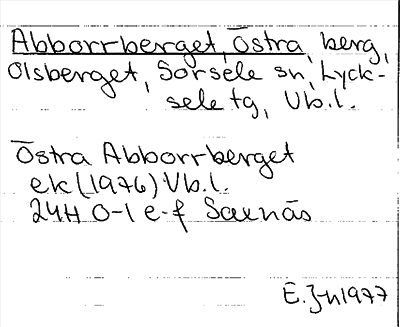 Abborrberget, Östra, berg,
Olsberget, Sorsele sn, Lyck-
sele tg, Vb.l.
Östra Abborrberget
ek (1976) Vb.l.
24H 0-1 e-f Saxnäs
E. J-n 1977